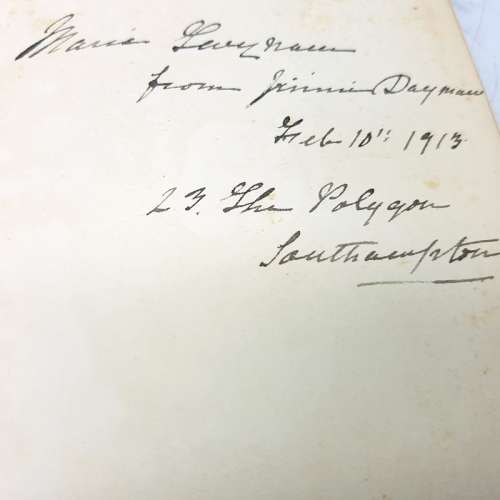 Maria
from Jinnie Dayman
Feb 10th 1913
23. The Polygon
Southampton